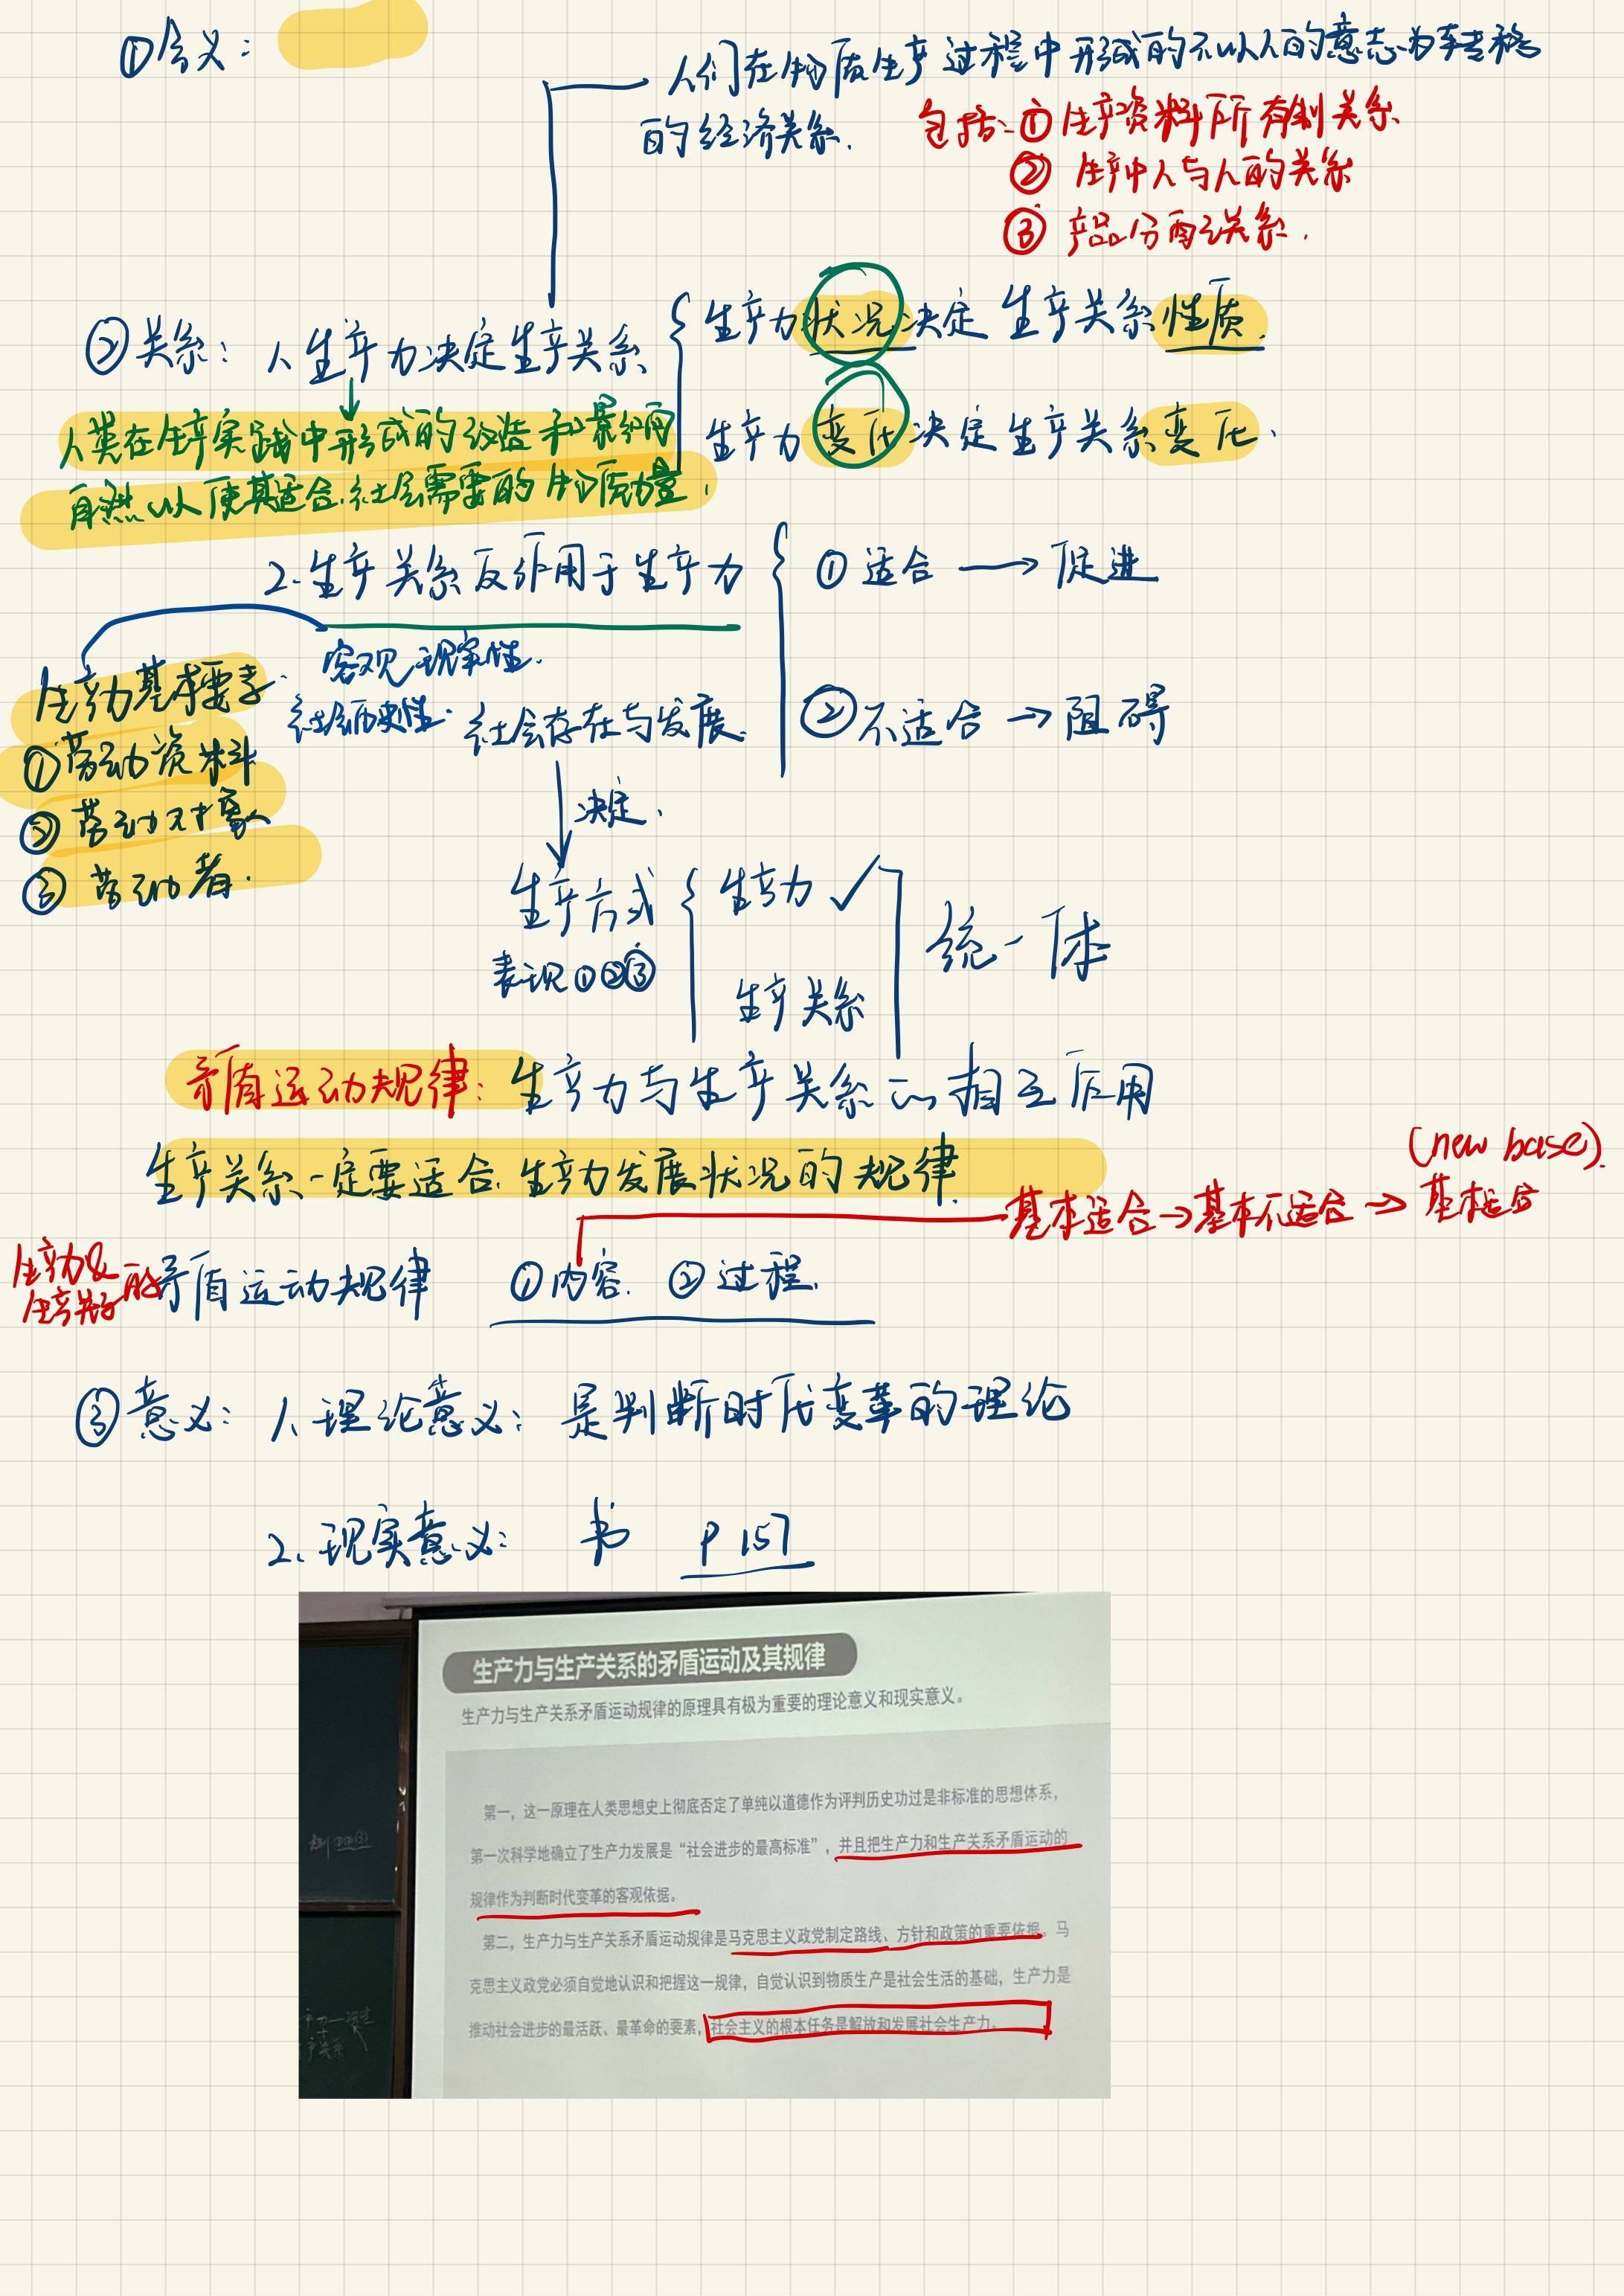 ①含义：
人们在物质生产过程中形成的不以人的意志为转移
的经济关系.
包括：①生产资料所有制关系
② 生产中人与人的关系
③ 产品分配关系.
②关系：1.生产力决定生产关系
生产力状况决定 生产关系性质.
生产力变化决定生产关系变化.
人类在生产实践中形成的改造和影响
自然以使其适合社会需要的物质力量.
2.生产关系反作用于生产力
① 适合 → 促进
② 不适合 → 阻碍
客观现实性.
社会历史性.
生产力基本要素.
①劳动资料
②劳动对象
③劳动者.
社会存在与发展.
决定.
生产方式
表现①②③
生产力 ✓
生产关系
统一体
矛盾运动规律：生产力与生产关系的相互作用
生产关系一定要适合生产力发展状况的规律.
(new base).
基本适合→基本不适合→基本适合
生产力&
生产关系的
矛盾运动规律 ①内容. ②过程.
③意义：1.理论意义：是判断时代变革的理论
2.现实意义：书 P157
生产力与生产关系的矛盾运动及其规律
生产力与生产关系矛盾运动规律的原理具有极为重要的理论意义和现实意义。
第一，这一原理在人类思想史上彻底否定了单纯以道德作为评判历史功过是非标准的思想体系，
第一次科学地确立了生产力发展是“社会进步的最高标准”，并且把生产力和生产关系矛盾运动的
规律作为判断时代变革的客观依据。
第二，生产力与生产关系矛盾运动规律是马克思主义政党制定路线、方针和政策的重要依据。马
克思主义政党必须自觉地认识和把握这一规律，自觉认识到物质生产是社会生活的基础，生产力是
推动社会进步的最活跃、最革命的要素，社会主义的根本任务是解放和发展社会生产力。